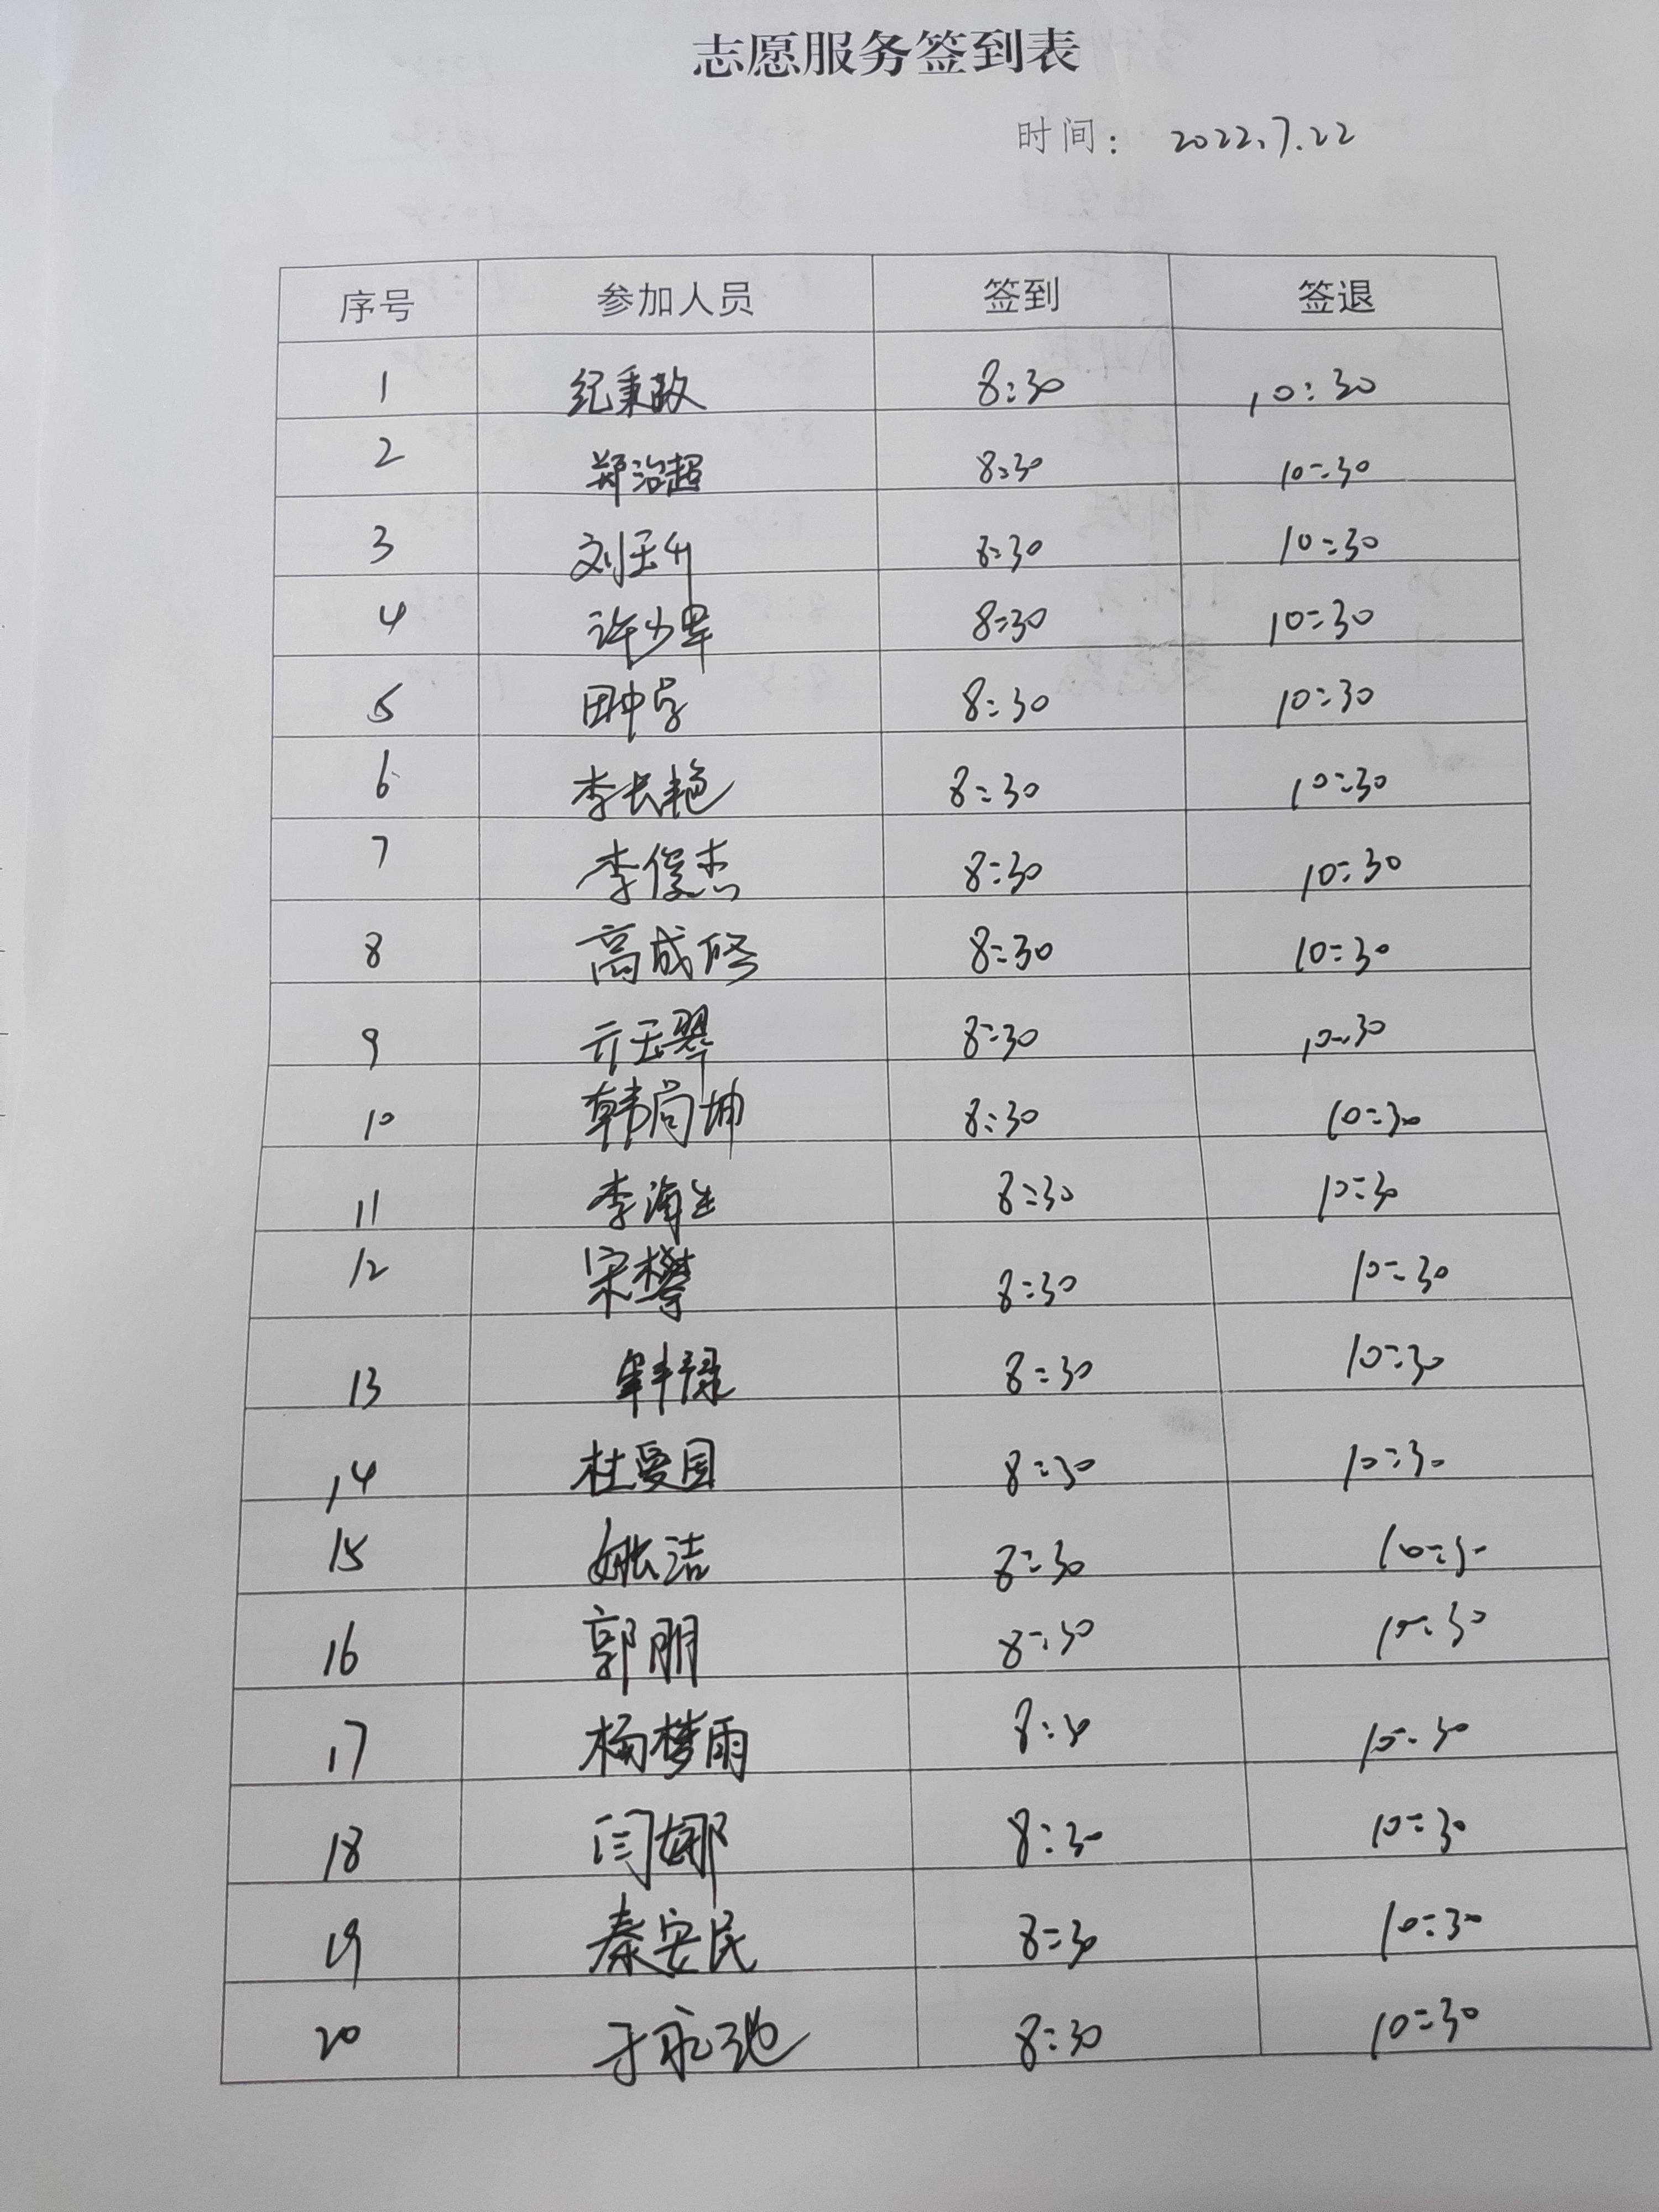 志愿服务签到表
时间: 2022.7.22
序号 参加人员 签到 签退
1 纪秉政 8:30 10:30
2 郑治超 8:30 10:30
3 刘玉升 8:30 10:30
4 许少军 8:30 10:30
5 田中 8:30 10:30
6 李长艳 8:30 10:30
7 李俊杰 8:30 10:30
8 高成修 8:30 10:30
9 亓玉翠 8:30 10:30
10 韩尚坤 8:30 10:30
11 李海生 8:30 10:30
12 宋攀 8:30 10:30
13 8:30 10:30
14 杜爱国 8:30 10:30
15 姚洁 8:30 10:30
16 郭朋 8:30 10:30
17 杨梦雨 8:30 10:30
18 闫娜 8:30 10:30
19 秦安民 8:30 10:30
20 于永弛 8:30 10:30